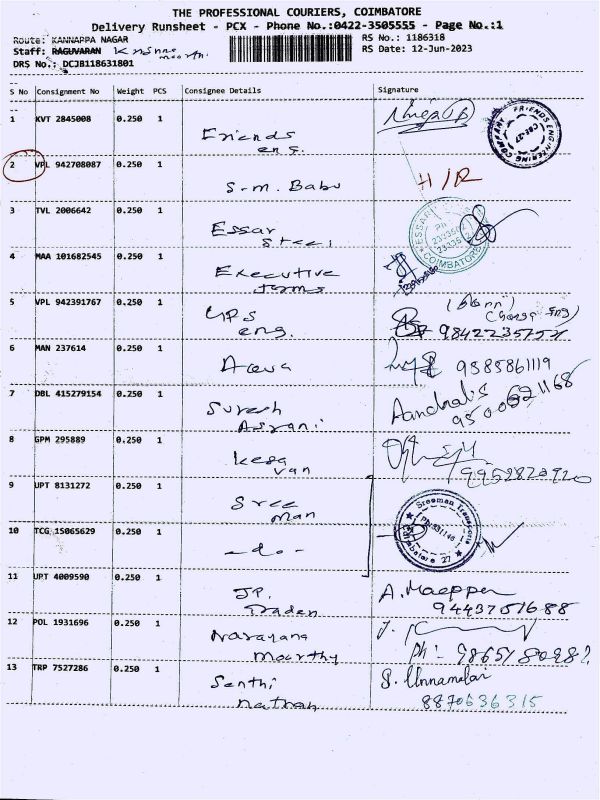 THE PROFESSIONAL COURIERS, COIMBATORE
Delivery Runsheet - PCX - Phone No.:0422-3505555 - Page No.:1
Route: KANNAPPA NAGAR
RS No.: 1186318
Staff: RAGUVARAN
RS Date: 12-Jun-2023
DRS No.: DCJB118631801
S No Consignment No Weight PCS Consignee Details Signature
1 KVT 2845008 0.250 1 Friends eng.
FRIENDS ENGINEERING COMPANY
2 VPL 942708087 0.250 1 S.M. Babu H/R
3 TVL 2006642 0.250 1 Essar Steel
ESSAR
Ph
COIMBATORE
4 MAA 101682545 0.250 1 Executive
5 VPL 942391767 0.250 1 UPS eng.
6 MAN 237614 0.250 1 9585861119
7 DBL 415279154 0.250 1 Suresh Asrani
8 GPM 295889 0.250 1 Kesavan
9952823920
9 UPT 8131272 0.250 1 Sree Man
Sreeman Transports
Coimbatore 27
10 TCG 15065629 0.250 1 -do-
11 UPT 4009590 0.250 1 JP. Traden
12 POL 1931696 0.250 1 Narayana Moorthy
Ph:-
13 TRP 7527286 0.250 1 Senthi Nathan
8870636315